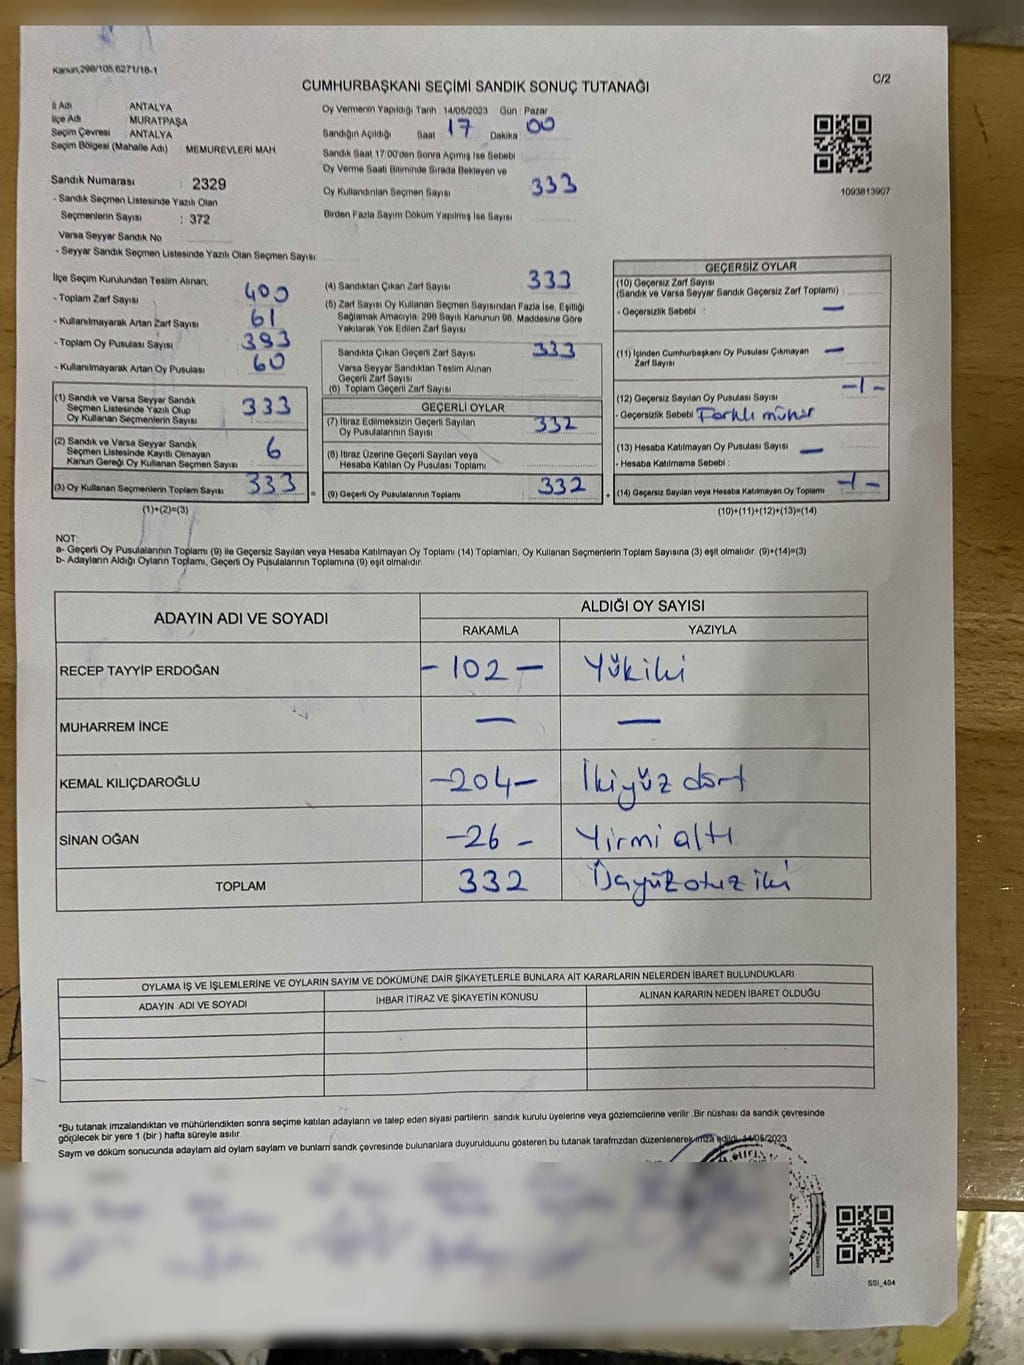 Kanun;298/105,6271/18-1
C/2
CUMHURBAŞKANI SEÇİMİ SANDIK SONUÇ TUTANAĞI
İl Adı : ANTALYA
İlçe Adı : MURATPAŞA
Seçim Çevresi : ANTALYA
Seçim Bölgesi (Mahalle Adı) : MEMUREVLERİ MAH.
Sandık Numarası : 2329
- Sandık Seçmen Listesinde Yazılı Olan
Seçmenlerin Sayısı : 372
Varsa Seyyar Sandık No
- Seyyar Sandık Seçmen Listesinde Yazılı Olan Seçmen Sayısı:
Oy Vermenin Yapıldığı Tarih 14/05/2023 Gün : Pazar
Sandığın Açıldığı Saat 17 Dakika 00
Sandık Saat 17:00'den Sonra Açımış İse Sebebi :
Oy Verme Saati Bitiminde Sırada Bekleyen ve
Oy Kullandırılan Seçmen Sayısı 333
Birden Fazla Sayım Döküm Yapılmış İse Sayısı
1093813907
İlçe Seçim Kurulundan Teslim Alınan;
- Toplam Zarf Sayısı 400
- Kullanılmayarak Artan Zarf Sayısı 61
- Toplam Oy Pusulası Sayısı 393
- Kullanılmayarak Artan Oy Pusulası 60
(1) Sandık ve Varsa Seyyar Sandık
Seçmen Listesinde Yazılı Olup
Oy Kullanan Seçmenlerin Sayısı 333
(2) Sandık ve Varsa Seyyar Sandık
Seçmen Listesinde Kayıtlı Olmayan
Kanun Gereği Oy Kullanan Seçmen Sayısı 6
(3) Oy Kullanan Seçmenlerin Toplam Sayısı 333
(1)+(2)=(3)
(4) Sandıktan Çıkan Zarf Sayısı 333
(5) Zarf Sayısı Oy Kullanan Seçmen Sayısından Fazla İse, Eşitliği
Sağlamak Amacıyla; 298 Sayılı Kanunun 98. Maddesine Göre
Yakılarak Yok Edilen Zarf Sayısı
Sandıkta Çıkan Geçerli Zarf Sayısı 333
Varsa Seyyar Sandıktan Teslim Alınan
Geçerli Zarf Sayısı
(6) Toplam Geçerli Zarf Sayısı
GEÇERLİ OYLAR
(7) İtiraz Edilmeksizin Geçerli Sayılan
Oy Pusulalarının Sayısı 332
(8) İtiraz Üzerine Geçerli Sayılan veya
Hesaba Katılan Oy Pusulası Toplamı
= (9) Geçerli Oy Pusulalarının Toplamı 332 +
GEÇERSİZ OYLAR
(10) Geçersiz Zarf Sayısı
(Sandık ve Varsa Seyyar Sandık Geçersiz Zarf Toplamı) :
- Geçersizlik Sebebi : —
(11) İçinden Cumhurbaşkanı Oy Pusulası Çıkmayan
Zarf Sayısı —
(12) Geçersiz Sayılan Oy Pusulası Sayısı -1-
- Geçersizlik Sebebi Farklı mühür
(13) Hesaba Katılmayan Oy Pusulası Sayısı —
- Hesaba Katılmama Sebebi :
(14) Geçersiz Sayılan veya Hesaba Katılmayan Oy Toplamı -1-
(10)+(11)+(12)+(13)=(14)
NOT:
a- Geçerli Oy Pusulalarının Toplamı (9) ile Geçersiz Sayılan veya Hesaba Katılmayan Oy Toplamı (14) Toplamları, Oy Kullanan Seçmenlerin Toplam Sayısına (3) eşit olmalıdır. (9)+(14)=(3)
b- Adayların Aldığı Oyların Toplamı, Geçerli Oy Pusulalarının Toplamına (9) eşit olmalıdır.
ADAYIN ADI VE SOYADI ALDIĞI OY SAYISI
RAKAMLA YAZIYLA
RECEP TAYYİP ERDOĞAN - 102 - Yükiki
MUHARREM İNCE — —
KEMAL KILIÇDAROĞLU -204- İkiyüz dört
SİNAN OĞAN -26 - Yirmi altı
TOPLAM 332 Üçyüz otuz iki
OYLAMA İŞ VE İŞLEMLERİNE VE OYLARIN SAYIM VE DÖKÜMÜNE DAİR ŞİKAYETLERLE BUNLARA AİT KARARLARIN NELERDEN İBARET BULUNDUKLARI
ADAYIN ADI VE SOYADI İHBAR İTİRAZ VE ŞİKAYETİN KONUSU ALINAN KARARIN NEDEN İBARET OLDUĞU
*Bu tutanak imzalandıktan ve mühürlendikten sonra seçime katılan adayların ve talep eden siyasi partilerin sandık kurulu üyelerine veya gözlemcilerine verilir .Bir nüshası da sandık çevresinde
görülecek bir yere 1 (bir ) hafta süreyle asılır.
Saym ve döküm sonucunda adaylam ald oylam saylam ve bunlam sandk çevresinde bulunanlara duyurulduunu gösteren bu tutanak tarafmzdan düzenlenerek imza edildi. 14/05/2023
SSI_404